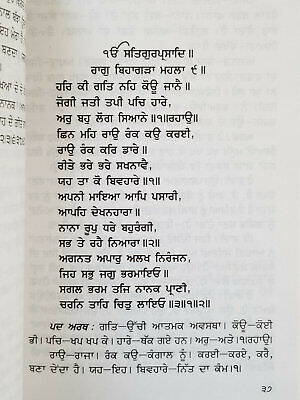 ੴ ਸਤਿਗੁਰਪ੍ਰਸਾਦਿ॥
ਰਾਗੁ ਬਿਹਾਗੜਾ ਮਹਲਾ ੯॥
ਹਰਿ ਕੀ ਗਤਿ ਨਹਿ ਕੋਊ ਜਾਨੈ॥
ਜੋਗੀ ਜਤੀ ਤਪੀ ਪਚਿ ਹਾਰੇ,
ਅਰੁ ਬਹੁ ਲੋਗ ਸਿਆਨੇ॥੧॥ਰਹਾਉ॥
ਛਿਨ ਮਹਿ ਰਾਉ ਰੰਕ ਕਉ ਕਰਈ,
ਰਾਉ ਰੰਕ ਕਰਿ ਡਾਰੇ॥
ਰੀਤੇ ਭਰੇ ਭਰੇ ਸਖਨਾਵੈ,
ਯਹ ਤਾ ਕੋ ਬਿਵਹਾਰੇ॥੧॥
ਅਪਨੀ ਮਾਇਆ ਆਪਿ ਪਸਾਰੀ,
ਆਪਹਿ ਦੇਖਨਹਾਰਾ॥
ਨਾਨਾ ਰੂਪੁ ਧਰੇ ਬਹੁਰੰਗੀ,
ਸਭ ਤੇ ਰਹੈ ਨਿਆਰਾ॥੨॥
ਅਗਨਤ ਅਪਾਰੁ ਅਲਖ ਨਿਰੰਜਨ,
ਜਿਹ ਸਭੁ ਜਗੁ ਭਰਮਾਇਓ॥
ਸਗਲ ਭਰਮ ਤਜਿ ਨਾਨਕ ਪ੍ਰਾਣੀ,
ਚਰਨਿ ਤਾਹਿ ਚਿਤੁ ਲਾਇਓ॥੩॥੧॥੨॥
ਪਦ ਅਰਥ: ਗਤਿ-ਉੱਚੀ ਆਤਮਕ ਅਵਸਥਾ। ਕੋਊ-ਕੋਈ
ਭੀ। ਪਚਿ-ਖਪ ਖਪ ਕੇ। ਹਾਰੇ-ਥੱਕ ਗਏ ਹਨ। ਅਰੁ-ਅਤੇ।੧।ਰਹਾਉ।
ਰਾਉ-ਰਾਜਾ। ਰੰਕ ਕਉ-ਕੰਗਾਲ ਨੂੰ। ਕਰਈ-ਕਰਏ, ਕਰੈ,
ਬਣਾ ਦੇਂਦਾ ਹੈ। ਯਹ-ਇਹ। ਬਿਵਹਾਰੇ-ਨਿੱਤ ਦਾ ਕੰਮ।੧।
੩੭